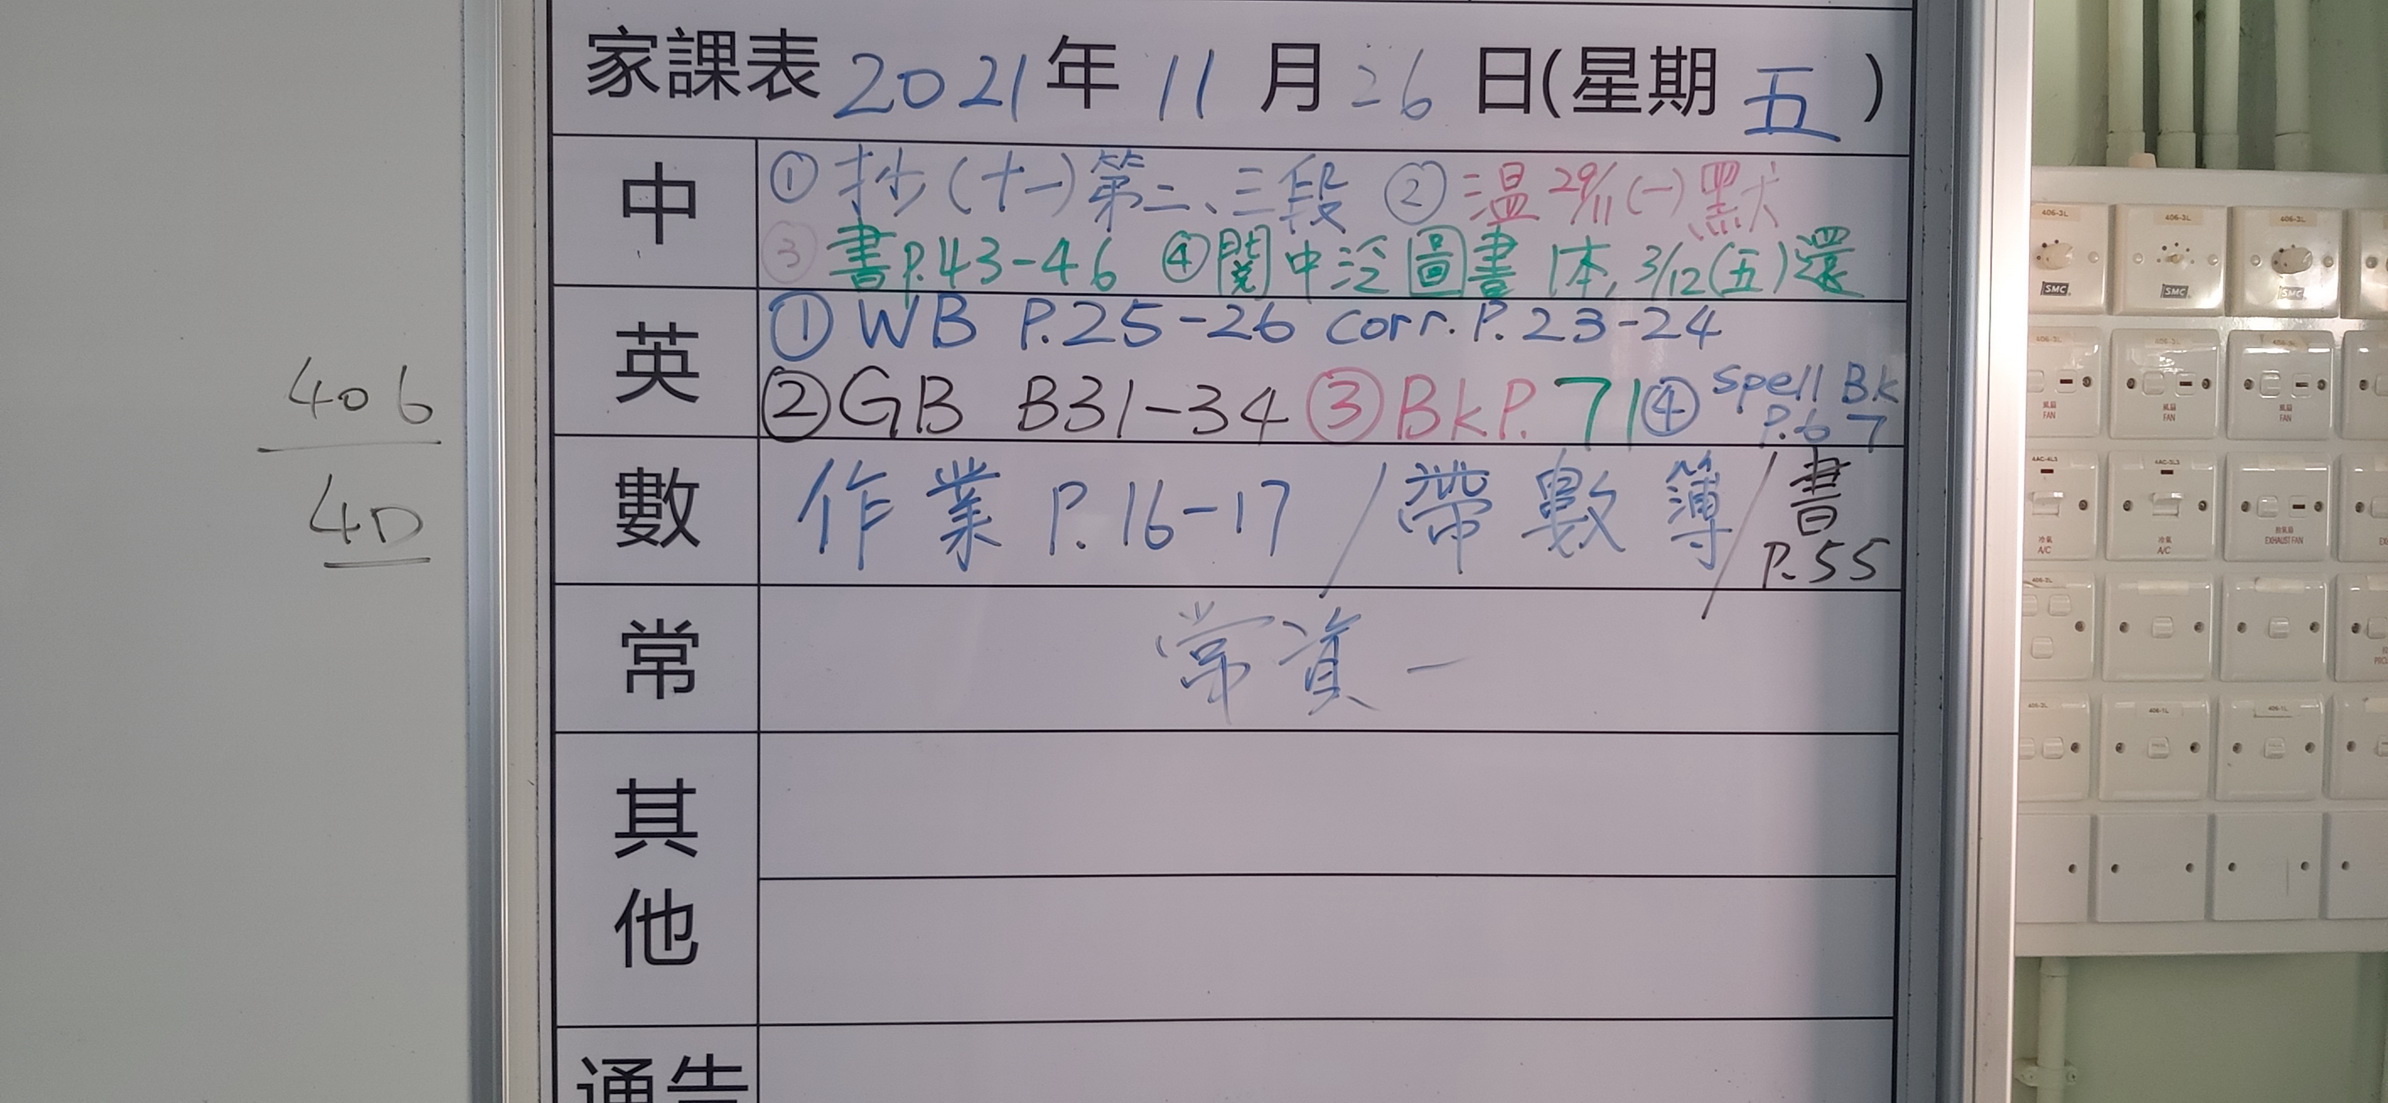 家課表 2021 年 11 月 26 日(星期 五)
中
① 抄(十一)第二、三段 ② 温 29/11 (一) 默
③ 書 P.43-46 ④ 閱中泛圖書 1本, 3/12(五)還
英
① WB P.25-26 corr. P.23-24
② GB B31-34 ③ BK P. 71 ④ Spell BK P.67
數
作業 P.16-17 / 帶數簿 / 書 P.55
常
常資一
其他
通告
406
4D
406-3L
406-3L
406-3L
SMC
SMC
SMC
風扇 FAN
風扇 FAN
風扇 FAN
冷氣 A/C
冷氣 A/C
抽氣扇 EXHAUST FAN